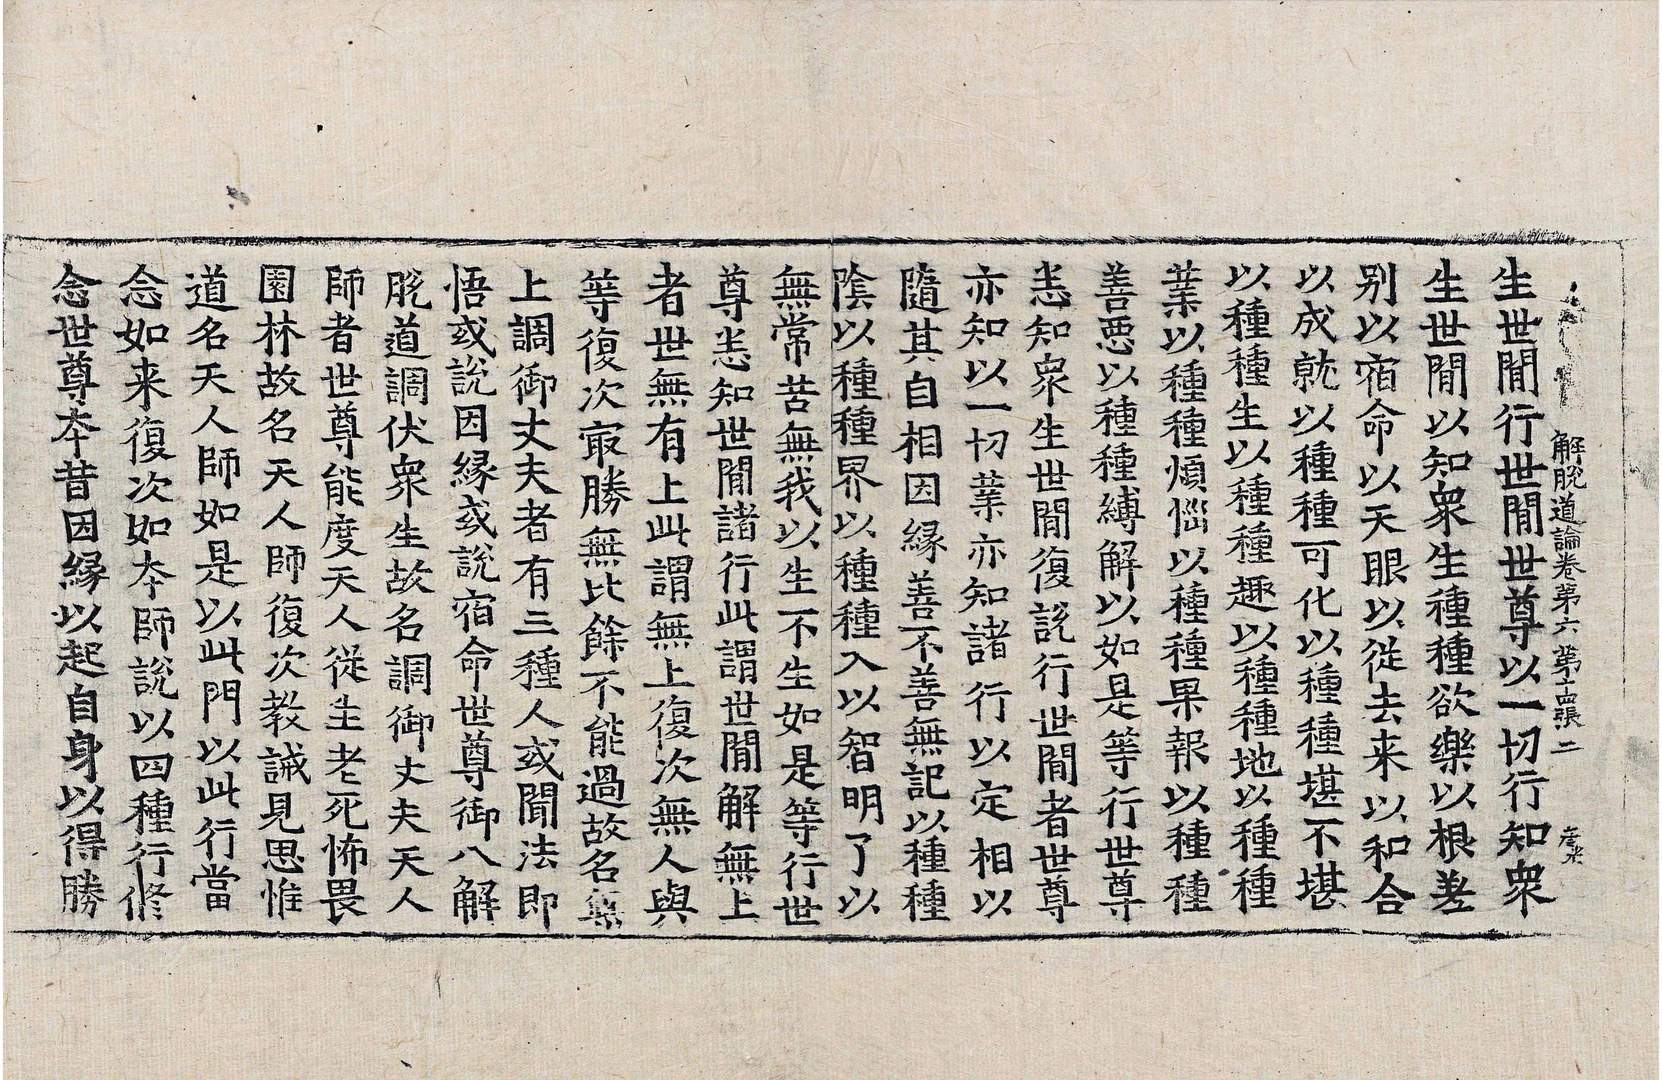 解脫道論卷第六 第十四張 二
生世間行世間世尊以一切行知衆
生世間以知衆生種種欲樂以根差
别以宿命以天眼以從去来以和合
以成就以種種可化以種種堪不堪
以種種生以種種趣以種種地以種種
業以種種煩惱以種種果報以種種
善悪以種種縛解以如是等行世尊
悉知衆生世間復說行世間者世尊
亦知以一切業亦知諸行以定相以
隨其自相因縁善不善無記以種種
陰以種種界以種種入以智明了以
無常苦無我以生不生如是等行世
尊悉知世間諸行此謂世間解無上
者世無有上此謂無上復次無人與
等復次㝡勝無比餘不能過故名無
上調御丈夫者有三種人或聞法即
悟或說因縁或說宿命世尊御八解
脫道調伏衆生故名調御丈夫天人
師者世尊能度天人從生老死怖畏
園林故名天人師復次教誡見思惟
道名天人師如是以此門以此行當
念如来復次如夲師說以四種行修
念世尊夲昔因縁以起自身以得勝